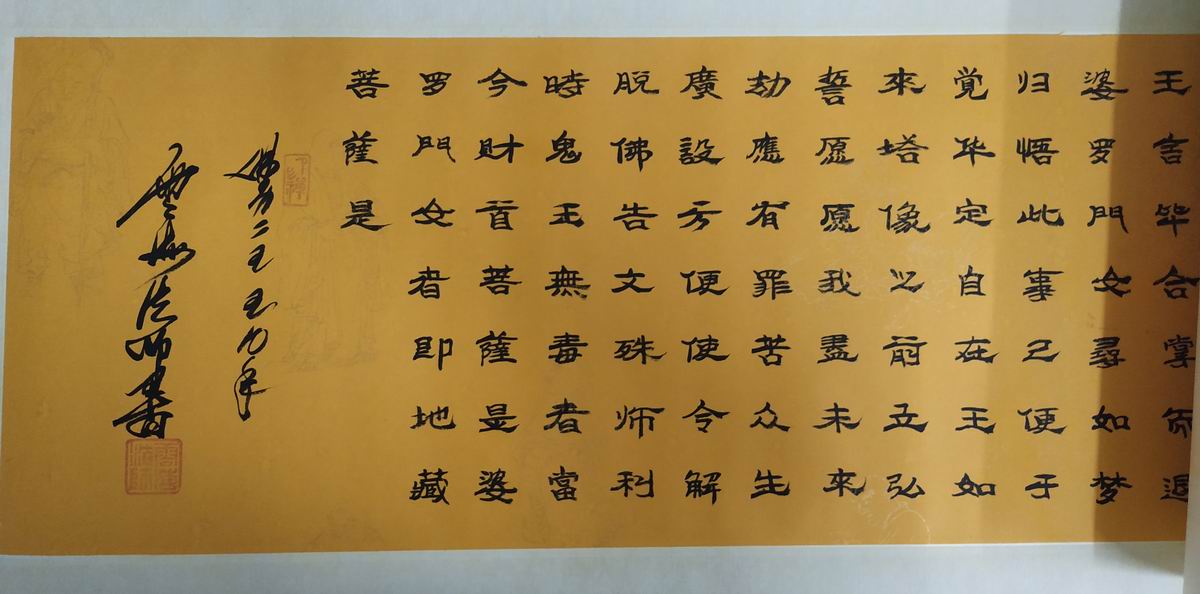 王言毕合掌而退
婆罗門女尋如梦
归悟此事已便于
觉华定自在王如
來塔像之前立弘
誓愿愿我盡未來
劫應有罪苦众生
廣設方便使令解
脱佛告文殊师利
時鬼王無毒者當
今財首菩薩是婆
罗門女者即地藏
菩薩是
佛历二五五九年
法师書